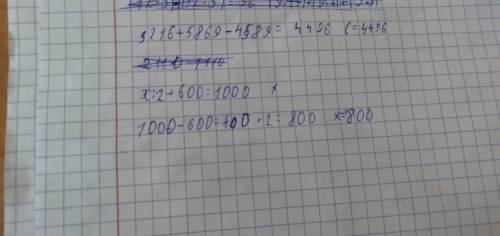 3216+5869-4589= 4496 C=4496
x:2+600=1000 x
1000-600=400·2=800 x=800